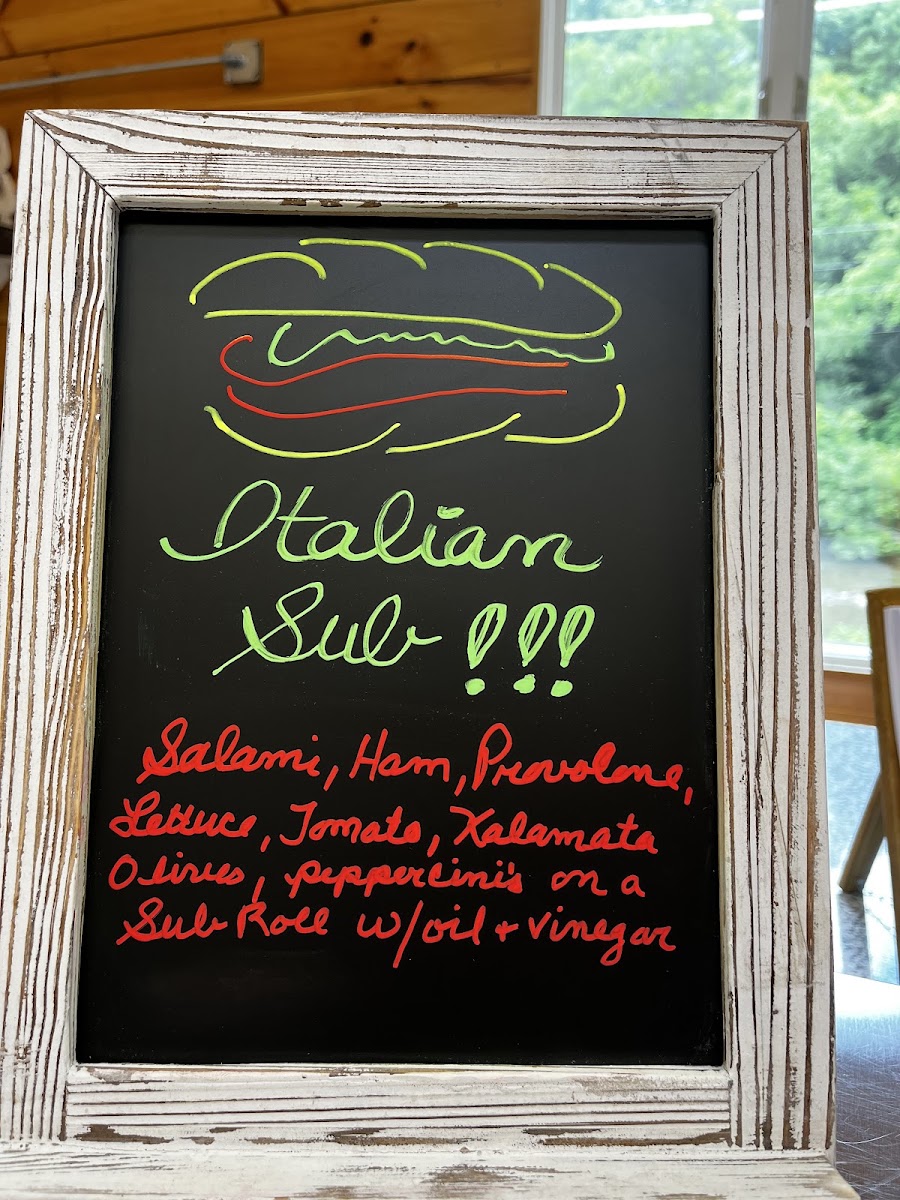 Italian
Sub !!!
Salami, Ham, Provolone,
Lettuce, Tomato, Kalamata
Olives, peppercini's on a
Sub Roll w/oil + vinegar